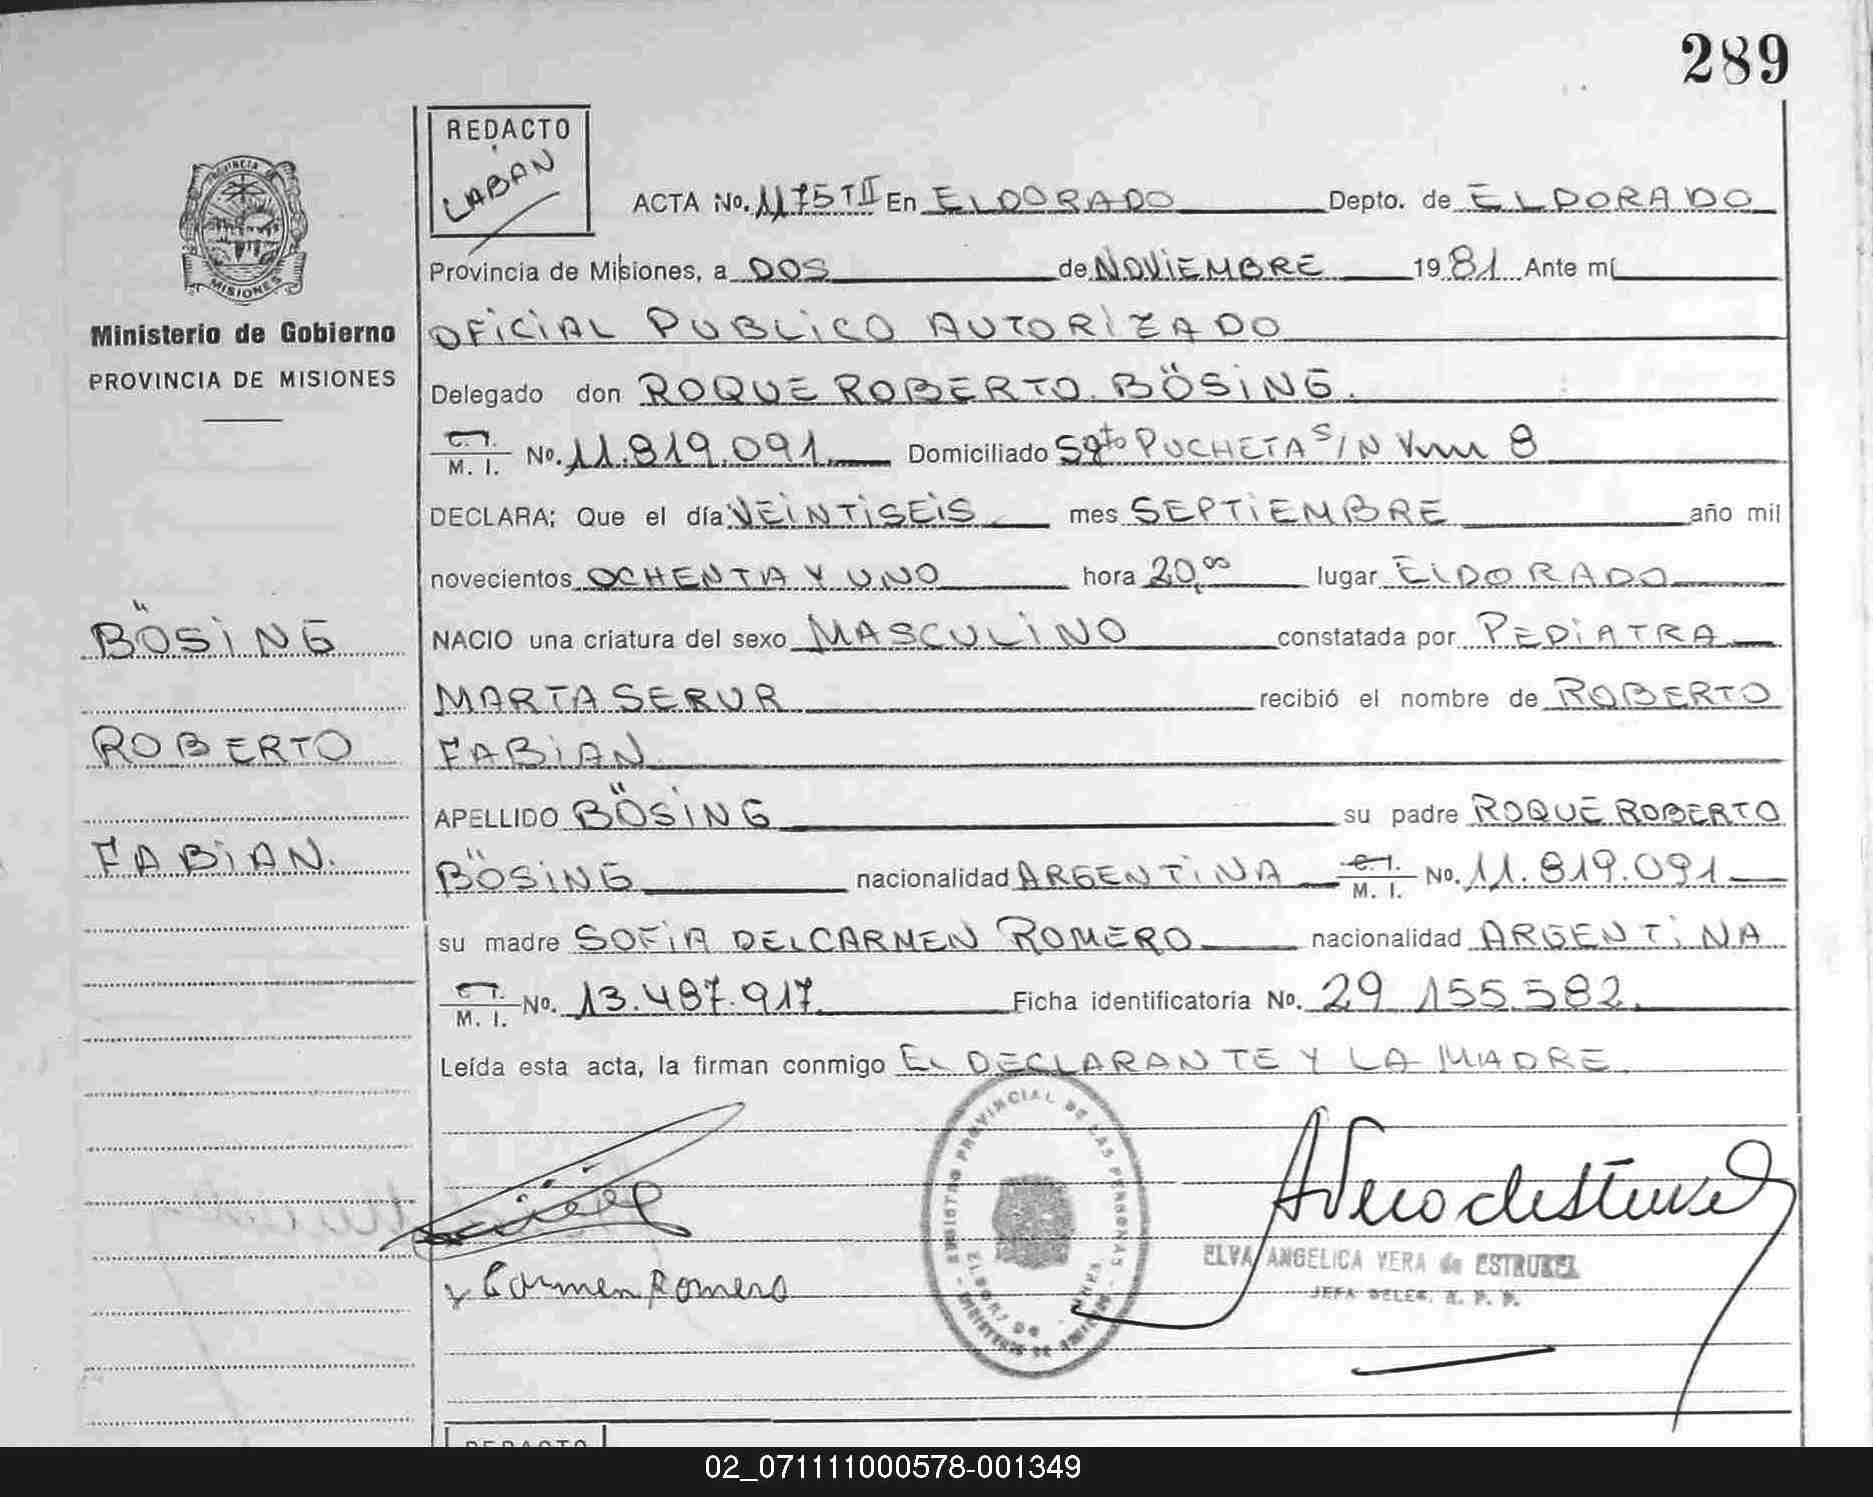 289
REDACTO
LABAN
PROVINCIA DE
MISIONES
Ministerio de Gobierno
PROVINCIA DE MISIONES
ACTA No. 1175 TII En ELDORADO Depto. de ELDORADO
Provincia de Misiones, a DOS de NOVIEMBRE 1981 Ante mí
OFICIAL PUBLICO AUTORIZADO
Delegado don ROQUE ROBERTO BÖSING.
C.I. M. I. No. 11.819.091 Domiciliado Sgto PUCHETA S/N Km 8
DECLARA; Que el día VEINTISEIS mes SEPTIEMBRE año mil
novecientos OCHENTA Y UNO hora 20,00 lugar ELDORADO
BÖSING
NACIO una criatura del sexo MASCULINO constatada por PEDIATRA
MARTA SERUR recibió el nombre de ROBERTO
ROBERTO
FABIAN
APELLIDO BÖSING su padre ROQUE ROBERTO
FABIAN.
BÖSING nacionalidad ARGENTINA C.I. M. I. No. 11.819.091
su madre SOFIA DEL CARMEN ROMERO nacionalidad ARGENTINA
C.I. M. I. No. 13.487.917 Ficha identificatoria No. 29 155.582.
Leída esta acta, la firman conmigo EL DECLARANTE Y LA MADRE
REGISTRO PROVINCIAL DE LAS PERSONAS
ELDORADO
x Carmen Romero
ELVA ANGELICA VERA de ESTRUKEL
JEFA DELEG. R. P. P.
REDACTO
02_071111000578-001349